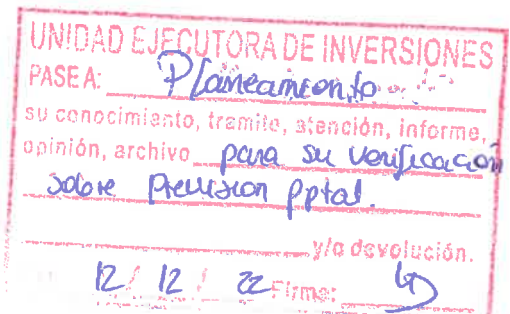 UNIDAD EJECUTORA DE INVERSIONES
PASE A: Planeamiento
su conocimiento, tramite, atención, informe,
opinión, archivo para su verificación
sobre Prevision pptal.
y/o devolución.
12 / 12 / 22 Firma: